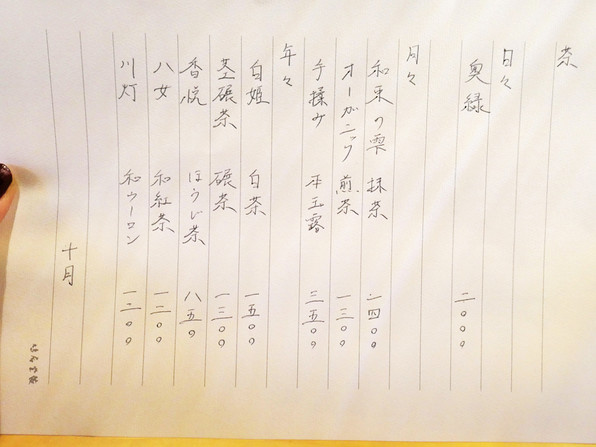 茶
日々
奥緑 二〇〇〇
月々
和束の雫 抹茶 二四〇〇
オーガニック 煎茶 一三〇〇
手揉み 本玉露 三五〇〇
年々
白姫 白茶 一五〇〇
茎碾茶 碾茶 一三〇〇
香悦 ほうじ茶 八五〇
八女 和紅茶 一二〇〇
川灯 和ウーロン 一二〇〇
十月